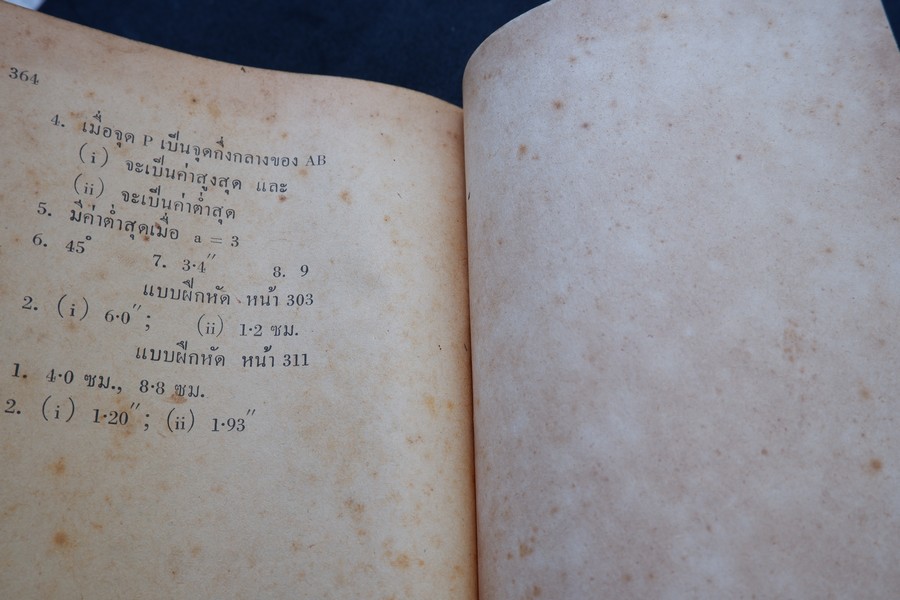 364
4. เมื่อจุด P เป็นจุดกึ่งกลางของ AB
(i) จะเป็นค่าสูงสุด และ
(ii) จะเป็นค่าต่ำสุด
5. มีค่าต่ำสุดเมื่อ a = 3
6. 45° 7. 3·4″ 8. 9
แบบฝึกหัด หน้า 303
2. (i) 6·0″; (ii) 1·2 ซม.
แบบฝึกหัด หน้า 311
1. 4·0 ซม., 8·8 ซม.
2. (i) 1·20″; (ii) 1·93″